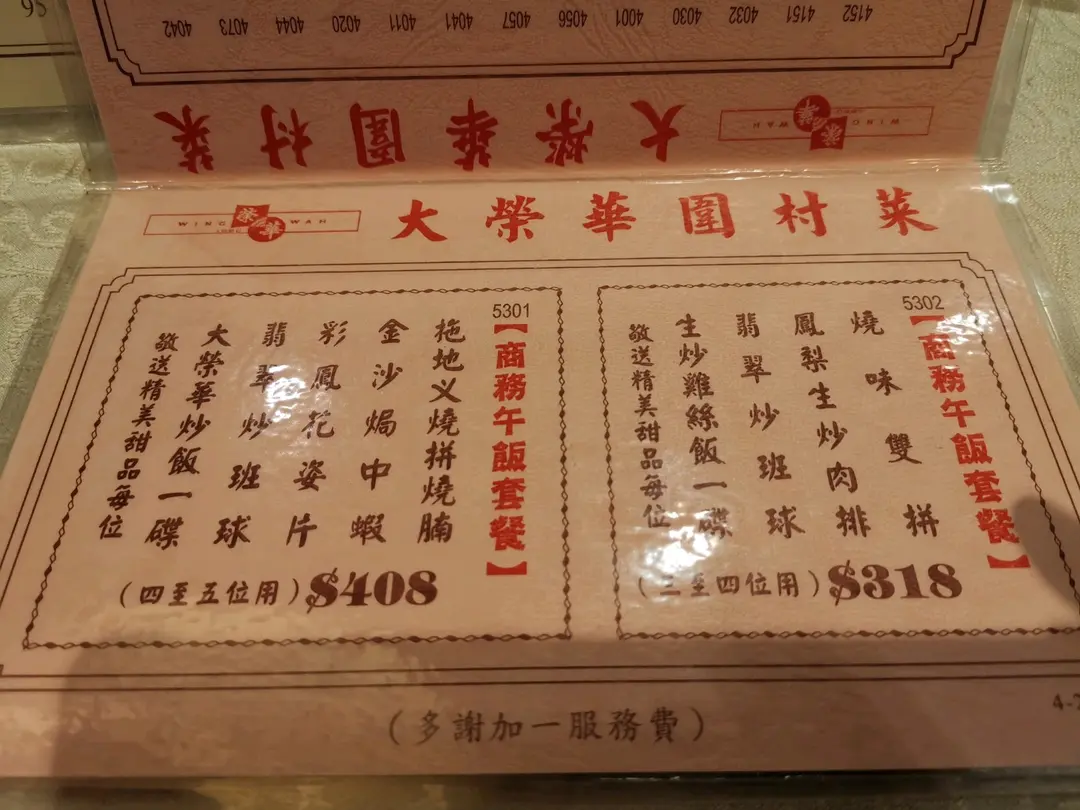 95
4152 4151 4032 4030 4001 4056 4057 4041 4011 4020 4044 4073 4042
大榮華圍村菜
WING WAH
榮華
WING WAH
榮華
大榮華圍村菜
5302
【商務午飯套餐】
燒味雙拼
鳳梨生炒肉排
翡翠炒班球
生炒雞絲飯一碟
敬送精美甜品每位
(三至四位用)$318
5301
【商務午飯套餐】
拖地义燒拼燒腩
金沙焗中蝦
彩鳳花姿片
翡翠炒班球
大榮華炒飯一碟
敬送精美甜品每位
(四至五位用)$408
(多謝加一服務費)